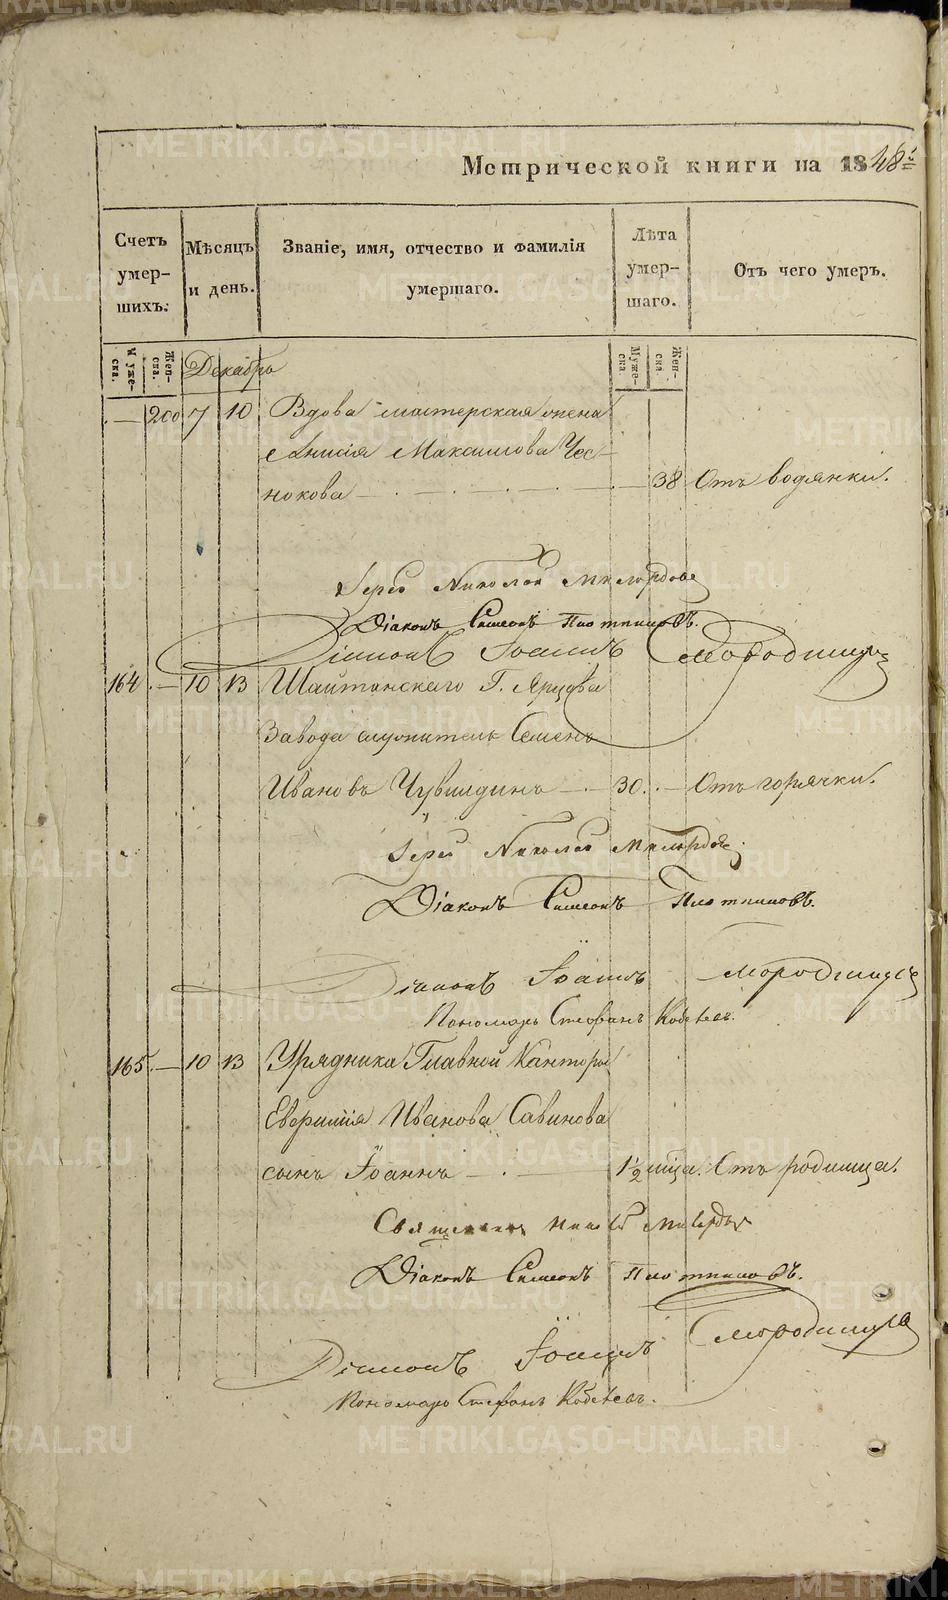 Метрической книги на 1848й
Счетъ умер- шихъ. Мѣсяцъ и день. Званіе, имя, отчество и фамилія умершаго. Лѣта умер- шаго. Отъ чего умеръ.
Муже- ска. Жен- ска. Декабрь Муже- ска Жен- ска.
— 200 7 10 Вдова мастерская жена
Анисія Максимова Чес-
нокова — 38 Отъ водянки.
Іерей Николай Милордовъ
Діаконъ Симеонъ Плотниковъ.
Діаконъ Іоаннъ Смородинцовъ
164. — 10 13 Шайтанскаго Г. Ярцова
Завода служитель Семенъ
Ивановъ — 30. — Отъ горячки.
Іерей Николай Милордовъ
Діаконъ Симеонъ Плотниковъ.
Діаконъ Іоаннъ Смородинцовъ
Пономарь Стефанъ
165. — 10 13 Урядника Главной Канторы
Иванова Савинова
сынъ Іоаннъ — 1½ мѣца. Отъ родимца.
Священникъ Николай Милордовъ
Діаконъ Симеонъ Плотниковъ.
Діаконъ Іоаннъ Смородинцовъ
Пономарь Стефанъ
METRIKI.GASO-URAL.RU